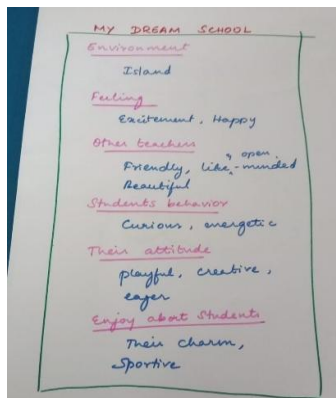 MY DREAM SCHOOL
Environment
Island
Feeling
Excitement, Happy
Other teachers
Friendly, like-minded & open
Beautiful
Students behavior
Curious, energetic
Their attitude
playful, creative,
eager
Enjoy about Students
Their charm,
Sportive